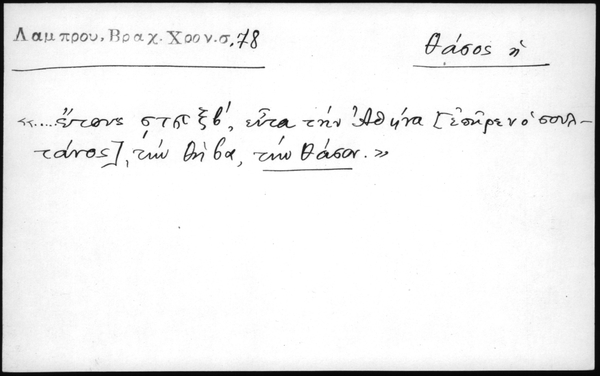 Λαμπρου, Βραχ. Χρον. σ. 78
Θάσος ἡ
«....ἔτους ϛπξβʹ, εἶτα τὴν Ἀθήνα [ἐπῆρεν ὁ σουλ-
τάνος], τὴν Θήβα, τὴν Θάσον.»